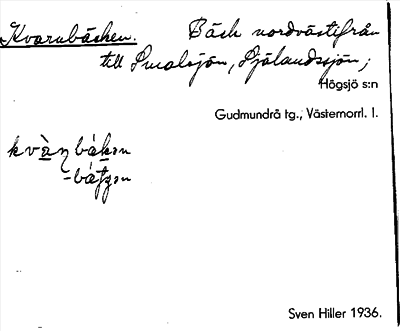 Kvarnbäcken. Bäck nordvästifrån
till Smalsjön, Själandssjön;
Högsjö s:n
Gudmundrå tg., Västernorrl. l.
kvàn bákən
Sven Hiller 1936.